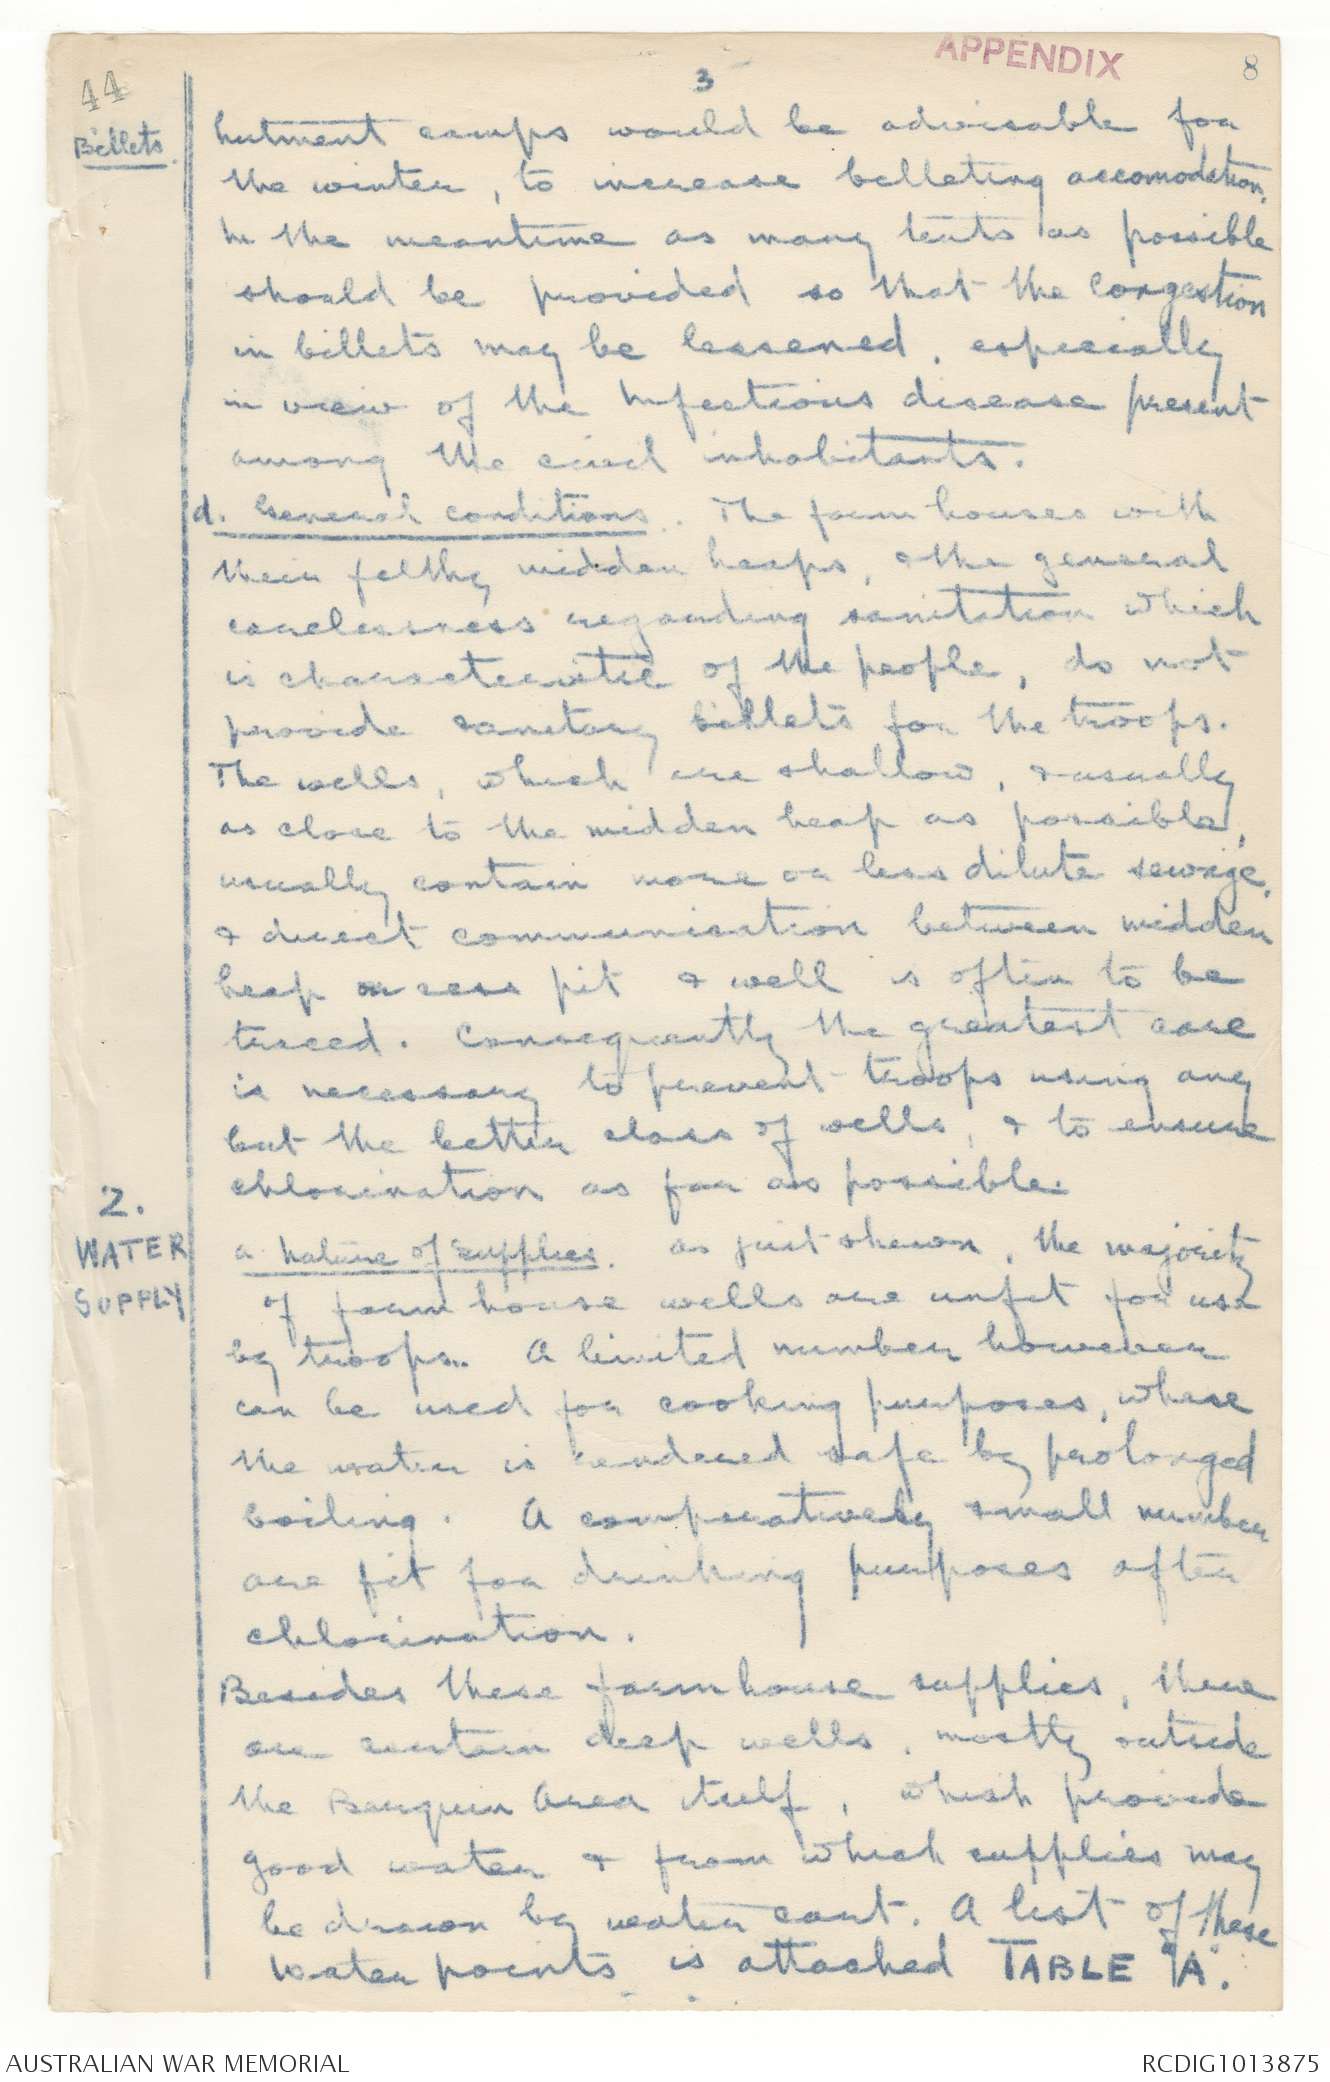 APPENDIX
44
3
8
Billets.
hutment camps would be advisable for
the winter, to increase billeting accomodation.
In the meantime as many tents as possible
should be provided so that the congestion
in billets may be lessened, especially
in view of the infectious disease present
among the civil inhabitants.
d. General conditions. The farm houses with
their filthy midden heaps, & the general
carelessness regarding sanitation which
is characteristic of the people, do not
provide sanitary billets for the troops.
The wells, which are shallow, & usually
as close to the midden heap as possible,
usually contain more or less dilute sewage,
& direct communication between midden
heap or cess pit & well is often to be
traced. Consequently the greatest care
is necessary to prevent troops using any
but the better class of wells, & to ensure
chlorination as far as possible.
2.
WATER
SUPPLY
a. Nature of supplies. as just shewn, the majority
of farm house wells are unfit for use
by troops. A limited number however
can be used for cooking purposes, where
the water is rendered safe by prolonged
boiling. A comparatively small number
are fit for drinking purposes after
chlorination.
Besides these farmhouse supplies, there
are certain deep wells, mostly outside
the Berguin Area itself, which provide
good water & from which supplies may
be drawn by water cart. A list of these
water points is attached TABLE "A".
AUSTRALIAN WAR MEMORIAL
RCDIG1013875